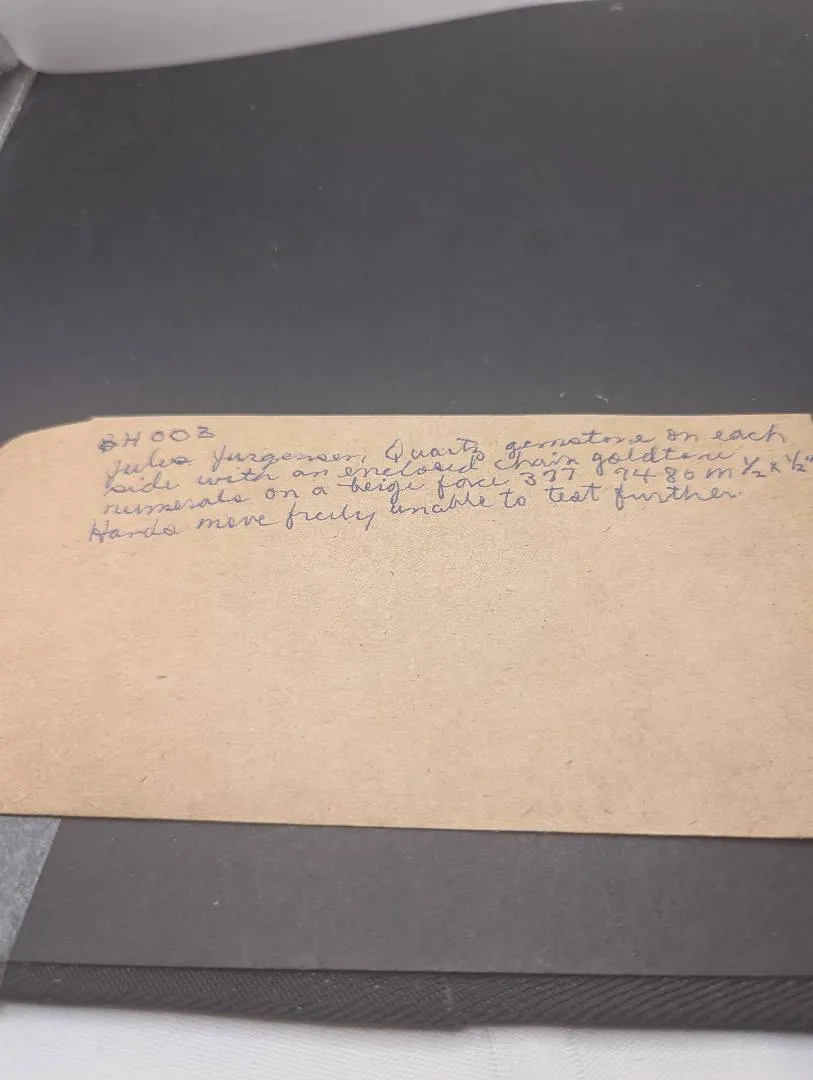 BH003
Jules Jurgensen, Quartz gemstone on each
side with an enclosed chain goldtone
numerals on a beige face 377 9480 m 1/2 x 1/2"
Hands move freely unable to test further.